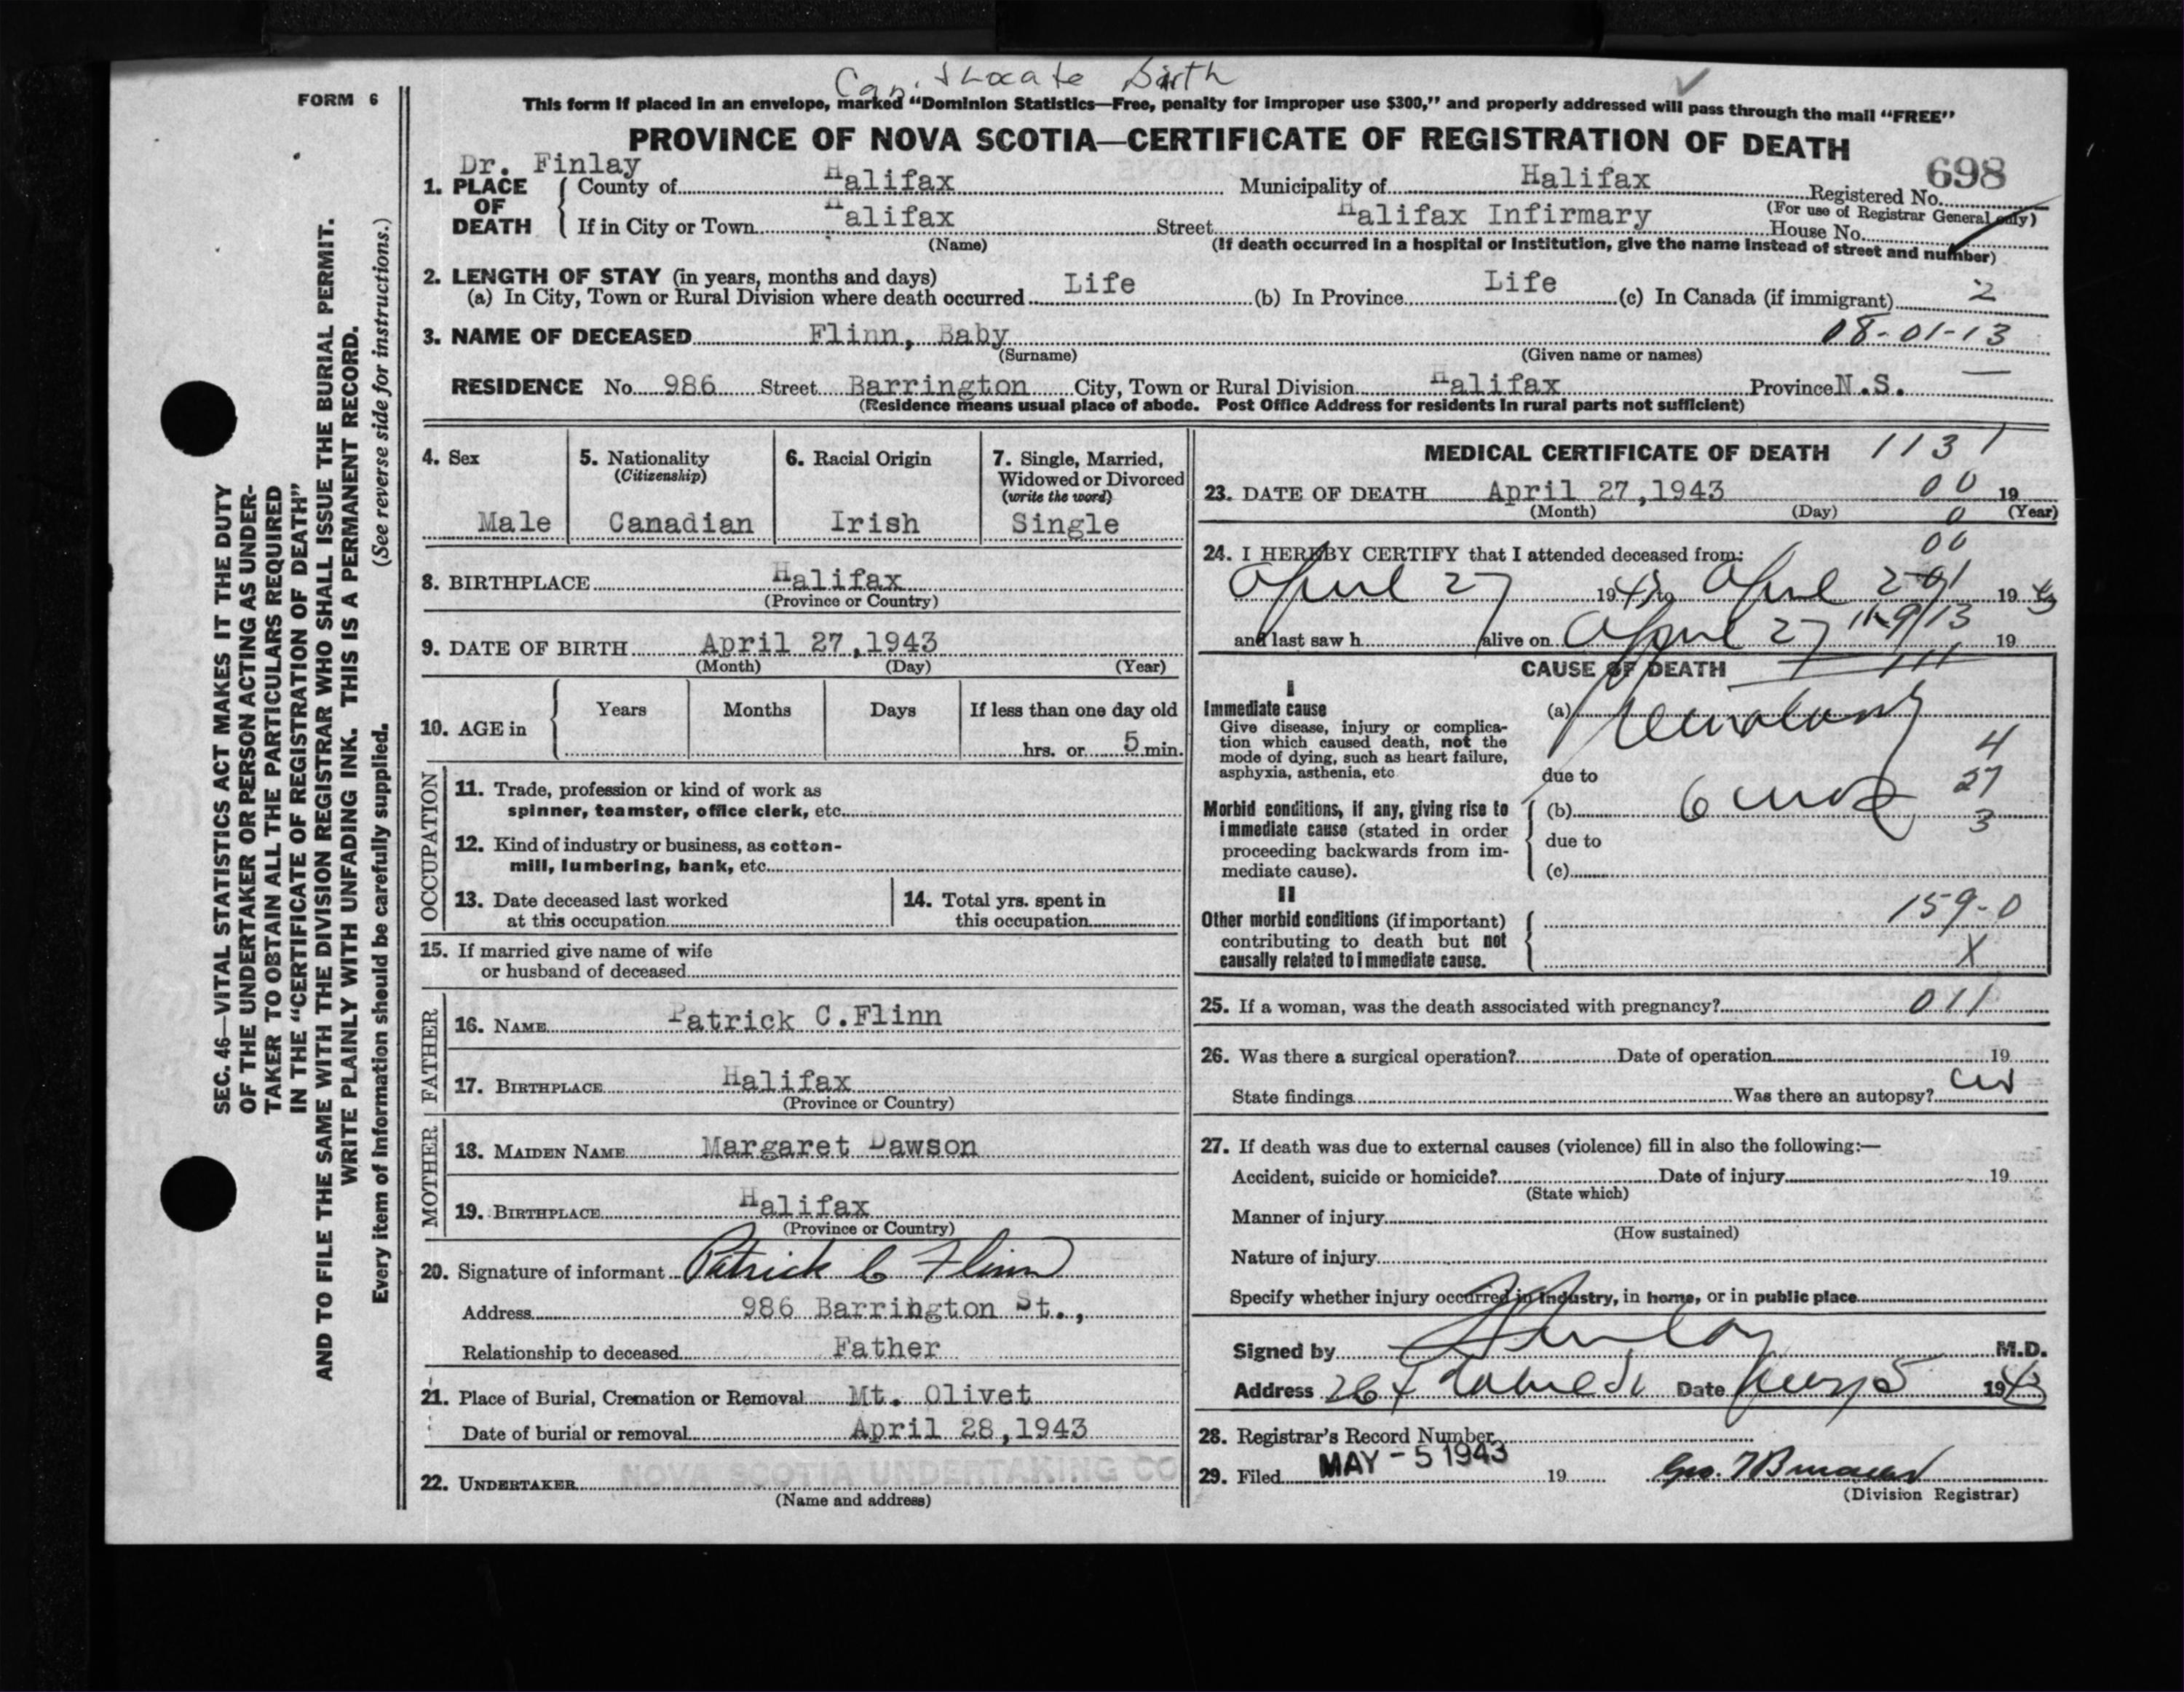 Can't Locate Birth
FORM 6
This form if placed in an envelope, marked "Dominion Statistics—Free, penalty for improper use $300," and properly addressed will pass through the mail "FREE"
PROVINCE OF NOVA SCOTIA—CERTIFICATE OF REGISTRATION OF DEATH
Dr. Finlay
698
1. PLACE OF DEATH { County of Halifax Municipality of Halifax Registered No.
(For use of Registrar General only)
If in City or Town Halifax Street Halifax Infirmary House No.
(Name) (If death occurred in a hospital or institution, give the name instead of street and number)
2. LENGTH OF STAY (in years, months and days)
(a) In City, Town or Rural Division where death occurred Life (b) In Province Life (c) In Canada (if immigrant) 2
3. NAME OF DECEASED Flinn, Baby 08-01-13
(Surname) (Given name or names)
RESIDENCE No. 986 Street Barrington City, Town or Rural Division Halifax Province N.S.
(Residence means usual place of abode. Post Office Address for residents in rural parts not sufficient)
4. Sex
Male
5. Nationality
(Citizenship)
Canadian
6. Racial Origin
Irish
7. Single, Married,
Widowed or Divorced
(write the word)
Single
8. BIRTHPLACE Halifax
(Province or Country)
9. DATE OF BIRTH April 27,1943
(Month) (Day) (Year)
10. AGE in { Years Months Days If less than one day old
hrs. or 5 min.
OCCUPATION
11. Trade, profession or kind of work as
spinner, teamster, office clerk, etc.
12. Kind of industry or business, as cotton-
mill, lumbering, bank, etc.
13. Date deceased last worked
at this occupation
14. Total yrs. spent in
this occupation
15. If married give name of wife
or husband of deceased
FATHER
16. NAME Patrick C.Flinn
17. BIRTHPLACE Halifax
(Province or Country)
MOTHER
18. MAIDEN NAME Margaret Dawson
19. BIRTHPLACE Halifax
(Province or Country)
20. Signature of informant Patrick C Flinn
Address 986 Barrington St.,
Relationship to deceased Father
21. Place of Burial, Cremation or Removal Mt. Olivet
Date of burial or removal April 28,1943
22. UNDERTAKER NOVA SCOTIA UNDERTAKING CO
(Name and address)
MEDICAL CERTIFICATE OF DEATH 1131
23. DATE OF DEATH April 27,1943 00 19
(Month) (Day) 0 (Year)
00
24. I HEREBY CERTIFY that I attended deceased from:
April 27 1943 to April 19 43
and last saw h alive on April 27 19
CAUSE OF DEATH
I
Immediate cause
Give disease, injury or complica-
tion which caused death, not the
mode of dying, such as heart failure,
asphyxia, asthenia, etc
(a) Prematurity
4
due to
27
Morbid conditions, if any, giving rise to
immediate cause (stated in order
proceeding backwards from im-
mediate cause).
(b) 6 mos
3
due to
(c)
II
Other morbid conditions (if important)
contributing to death but not
causally related to immediate cause.
159-0
X
25. If a woman, was the death associated with pregnancy? 011
26. Was there a surgical operation? Date of operation 19
State findings Was there an autopsy?
27. If death was due to external causes (violence) fill in also the following:—
Accident, suicide or homicide? Date of injury 19
(State which)
Manner of injury
(How sustained)
Nature of injury
Specify whether injury occurred in industry, in home, or in public place
Signed by Finlay M.D.
Address Date May 5 1943
28. Registrar's Record Number
29. Filed MAY - 5 1943 19 Geo.
(Division Registrar)
SEC. 46—VITAL STATISTICS ACT MAKES IT THE DUTY
OF THE UNDERTAKER OR PERSON ACTING AS UNDER-
TAKER TO OBTAIN ALL THE PARTICULARS REQUIRED
IN THE "CERTIFICATE OF REGISTRATION OF DEATH"
AND TO FILE THE SAME WITH THE DIVISION REGISTRAR WHO SHALL ISSUE THE BURIAL PERMIT.
WRITE PLAINLY WITH UNFADING INK. THIS IS A PERMANENT RECORD.
Every item of information should be carefully supplied. (See reverse side for instructions.)